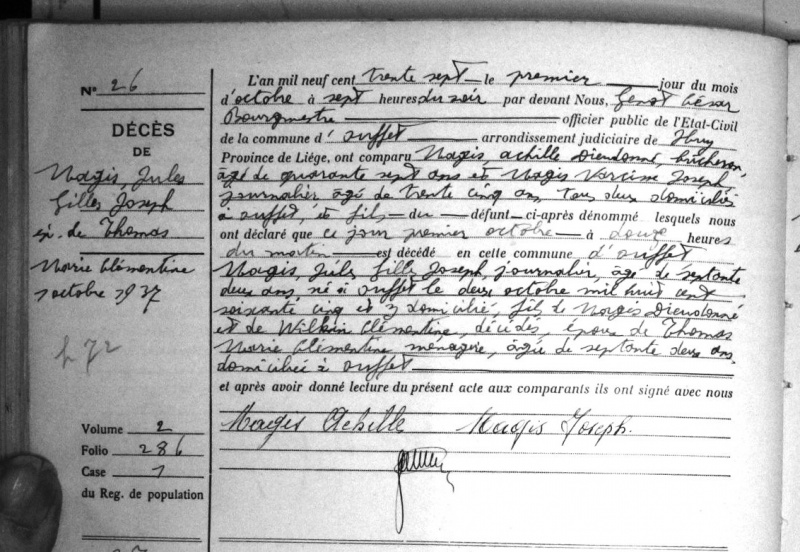 N° 26
DÉCÈS
DE
Magis, Jules
Gilles Joseph
ép. de Thomas
Marie Clémentine
1 octobre 1937
h 72
Volume 2
Folio 286
Case 1
du Reg. de population
L'an mil neuf cent trente sept le premier jour du mois
d'octobre à sept heures du soir par devant Nous, Genot César
Bourgmestre officier public de l'Etat-Civil
de la commune d' Ouffet arrondissement judiciaire de Huy
Province de Liége, ont comparu Magis, Achille Dieudonné, bûcheron,
âgé de quarante sept ans et Magis Narcisse Joseph
journalier âgé de trente cinq ans, tous deux domiciliés
à Ouffet, et fils du défunt ci-après dénommé lesquels nous
ont déclaré que ce jour premier octobre à douze heures
du matin est décédé en cette commune d'Ouffet
Magis, Jules Gilles Joseph, journalier, âgé de septante
deux ans né à Ouffet le deux octobre mil huit cent
soixante cinq et y domicilié, fils de Magis Dieudonné
et de Wilkin Clémentine, décédés, époux de Thomas
Marie Clémentine ménagère, âgée de septante deux ans,
domiciliée à Ouffet
et après avoir donné lecture du présent acte aux comparants ils ont signé avec nous
Magis Achille Magis Joseph.